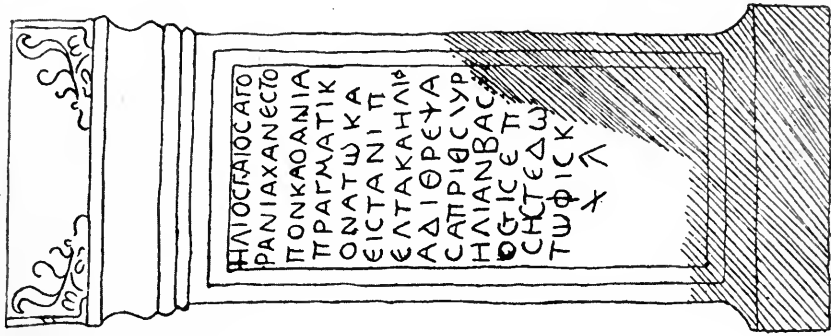 ΗΛΙΟCΓΑΙΟCΑΓΟ
ΡΑΝΙΑΧΑΝЄCΤΟ
ΠΟΝΚΑΟΑΝΙΑ
ΠΡΑΓΜΑΤΙΚ
ΟΝΑΤωΚΑ
ЄΙCΤΑΝΙΠ
ЄΛΤΑΚΑΗΛΙΦ
ΑΔΙΘΡЄΨΑ
CΑΠΡΙΘCΛΥΡ
ΗΛΙΑΝΒΑC
ΘGΙCЄΠ
CΗCΤЄΔω
ΤωΦΙCΚ
Χ Λ